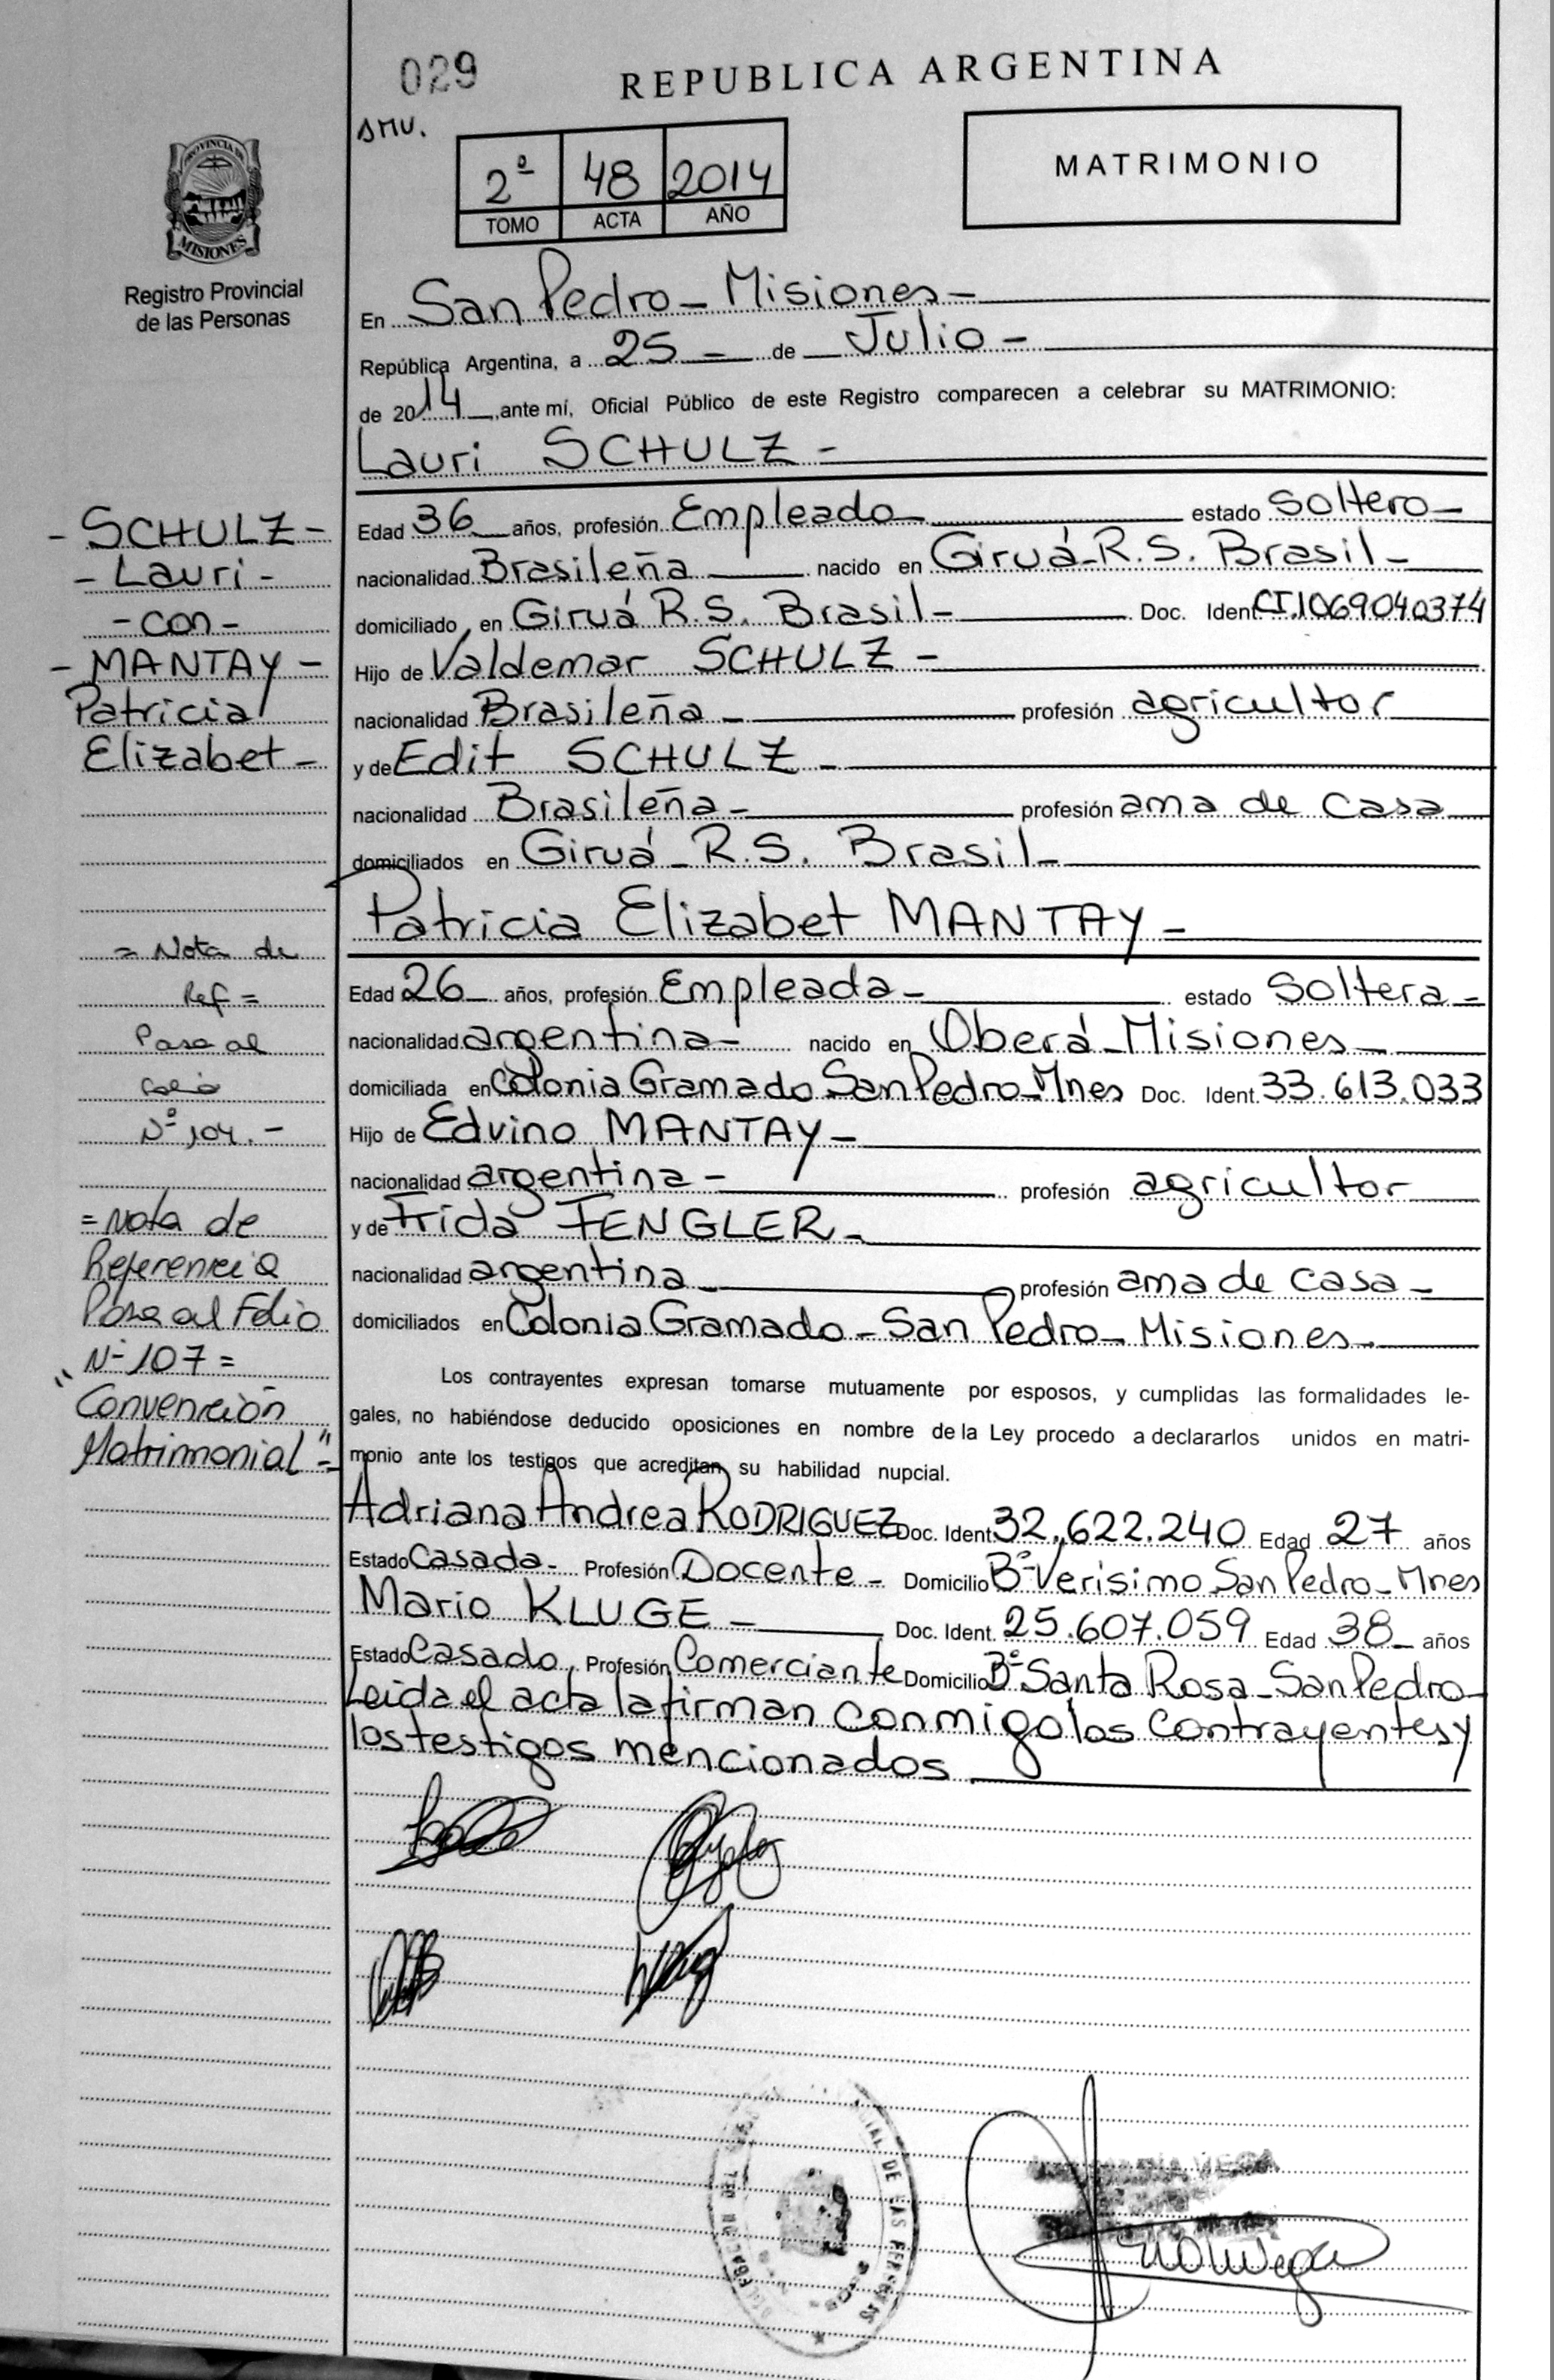 029
REPUBLICA ARGENTINA
SMV.
2º 48 2014
TOMO ACTA AÑO
MATRIMONIO
PROVINCIA DE
MISIONES
Registro Provincial
de las Personas
En San Pedro - Misiones -
República Argentina, a 25 - de Julio -
de 2014, ante mí, Oficial Público de este Registro comparecen a celebrar su MATRIMONIO:
Lauri SCHULZ -
- SCHULZ -
- Lauri -
- con -
- MANTAY -
Patricia
Elizabet -
Edad 36 años, profesión Empleado estado Soltero -
nacionalidad Brasileña nacido en Giruá - R.S. Brasil -
domiciliado en Giruá R.S. Brasil - Doc. Ident. CI.1069040374
Hijo de Valdemar SCHULZ -
nacionalidad Brasileña - profesión agricultor
y de Edit SCHULZ -
nacionalidad Brasileña - profesión ama de casa
domiciliados en Giruá - R.S. Brasil -
Patricia Elizabet MANTAY -
= Nota de
Ref =
Pasa al
folio
Nº 104. -
= Nota de
Referencia
Pasa al Folio
Nº 107 =
" Convención
Matrimonial " =
Edad 26 años, profesión Empleada - estado Soltera -
nacionalidad argentina - nacido en Oberá - Misiones -
domiciliada en Colonia Gramado San Pedro - Mnes Doc. Ident. 33.613.033
Hijo de Edvino MANTAY -
nacionalidad argentina - profesión agricultor
y de Frida FENGLER -
nacionalidad argentina - profesión ama de casa -
domiciliados en Colonia Gramado - San Pedro - Misiones -
Los contrayentes expresan tomarse mutuamente por esposos, y cumplidas las formalidades le-
gales, no habiéndose deducido oposiciones en nombre de la Ley procedo a declararlos unidos en matri-
monio ante los testigos que acreditan su habilidad nupcial.
Adriana Andrea RODRIGUEZ Doc. Ident. 32.622.240 Edad 27 años
Estado Casada - Profesión Docente - Domicilio Bº Verisimo San Pedro - Mnes
Mario KLUGE - Doc. Ident. 25.607.059 Edad 38 - años
Estado Casado, Profesión Comerciante Domicilio Bº Santa Rosa - San Pedro -
Leida el acta la firman conmigo los contrayentes y
los testigos mencionados
DE LAS PERSONAS
VEGA